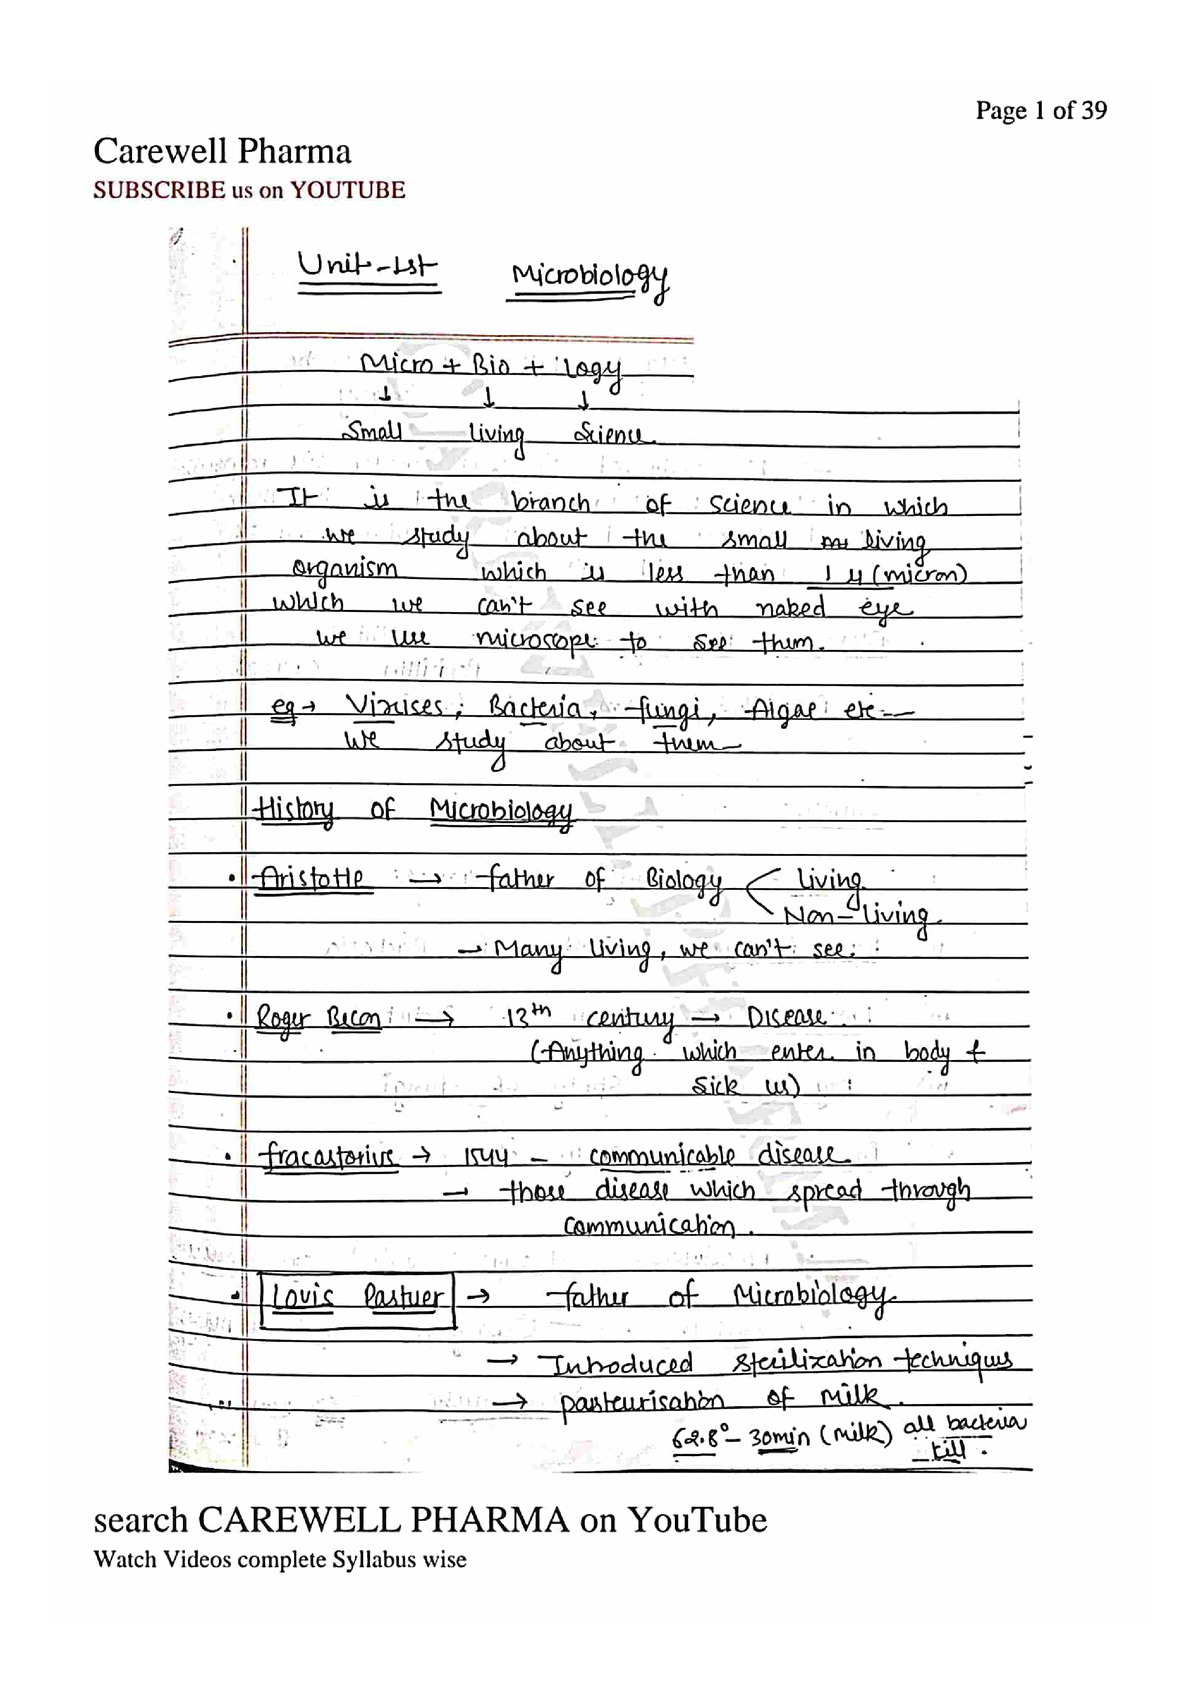 Page 1 of 39
Carewell Pharma
SUBSCRIBE us on YOUTUBE
Unit-1st Microbiology
Micro + Bio + logy
↓ ↓ ↓
Small living Science
It is the branch of science in which
we study about the small living
organism which is less than 1 μ (micron)
which we can't see with naked eye
we use microscope to see them.
eg → Viruses, Bacteria, fungi, Algae etc—
we study about them—
History of Microbiology
• Aristotle → father of Biology < living
Non-living
→ Many living, we can't see.
• Roger Becon → 13th century → Disease.
(Anything which enter in body &
sick us)
• fracastorius → 1544 - communicable disease
→ those disease which spread through
communication.
• Louis Pastuer → father of Microbiology
→ Introduced sterilization techniques
→ pasteurisation of milk.
62.8° - 30min (milk) all bacteria
kill.
search CAREWELL PHARMA on YouTube
Watch Videos complete Syllabus wise